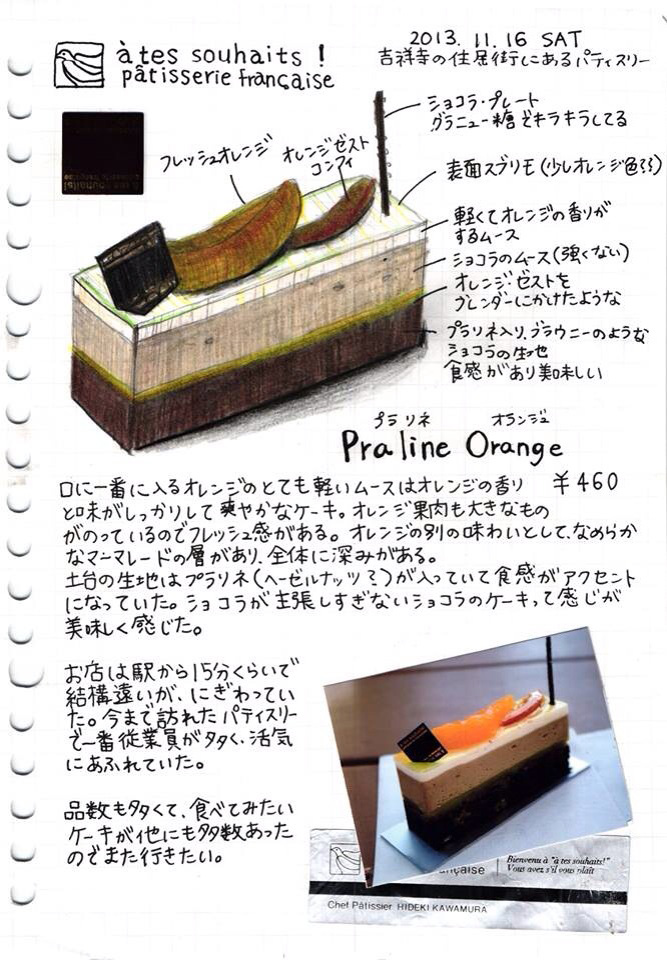 à tes souhaits !
pâtisserie française
2013. 11. 16 SAT
吉祥寺の住居街にあるパティスリー
ショコラ・プレート
グラニュー糖でキラキラしてる
フレッシュオレンジ
オレンジゼスト
コンフィ
表面スブリモ(少しオレンジ色??)
軽くてオレンジの香りが
するムース
ショコラのムース(強くない)
オレンジ・ゼストを
ブレンダーにかけたような
プラリネ入り、ブラウニーのような
ショコラの生地
食感があり美味しい
プラリネ オランジュ
Praline Orange
口に一番に入るオレンジのとても軽いムースはオレンジの香り
¥460
と味がしっかりして爽やかなケーキ。オレンジ果肉も大きなもの
がのっているのでフレッシュ感がある。オレンジの別の味わいとして、なめらか
なマーマレードの層があり、全体に深みがある。
土台の生地はプラリネ(ヘーゼルナッツ?)が入っていて食感がアクセント
になっていた。ショコラが主張しすぎないショコラのケーキって感じが
美味しく感じた。
お店は駅から15分くらいで
結構遠いが、にぎわってい
た。今まで訪れたパティスリー
で一番従業員が多く、活気
にあふれていた。
品数も多くて、食べてみたい
ケーキが他にも多数あった
のでまた行きたい。
française
Bienvenu à "à tes souhaits!"
Vous avez s'il vous plaît
Chef Pâtissier HIDEKI KAWAMURA